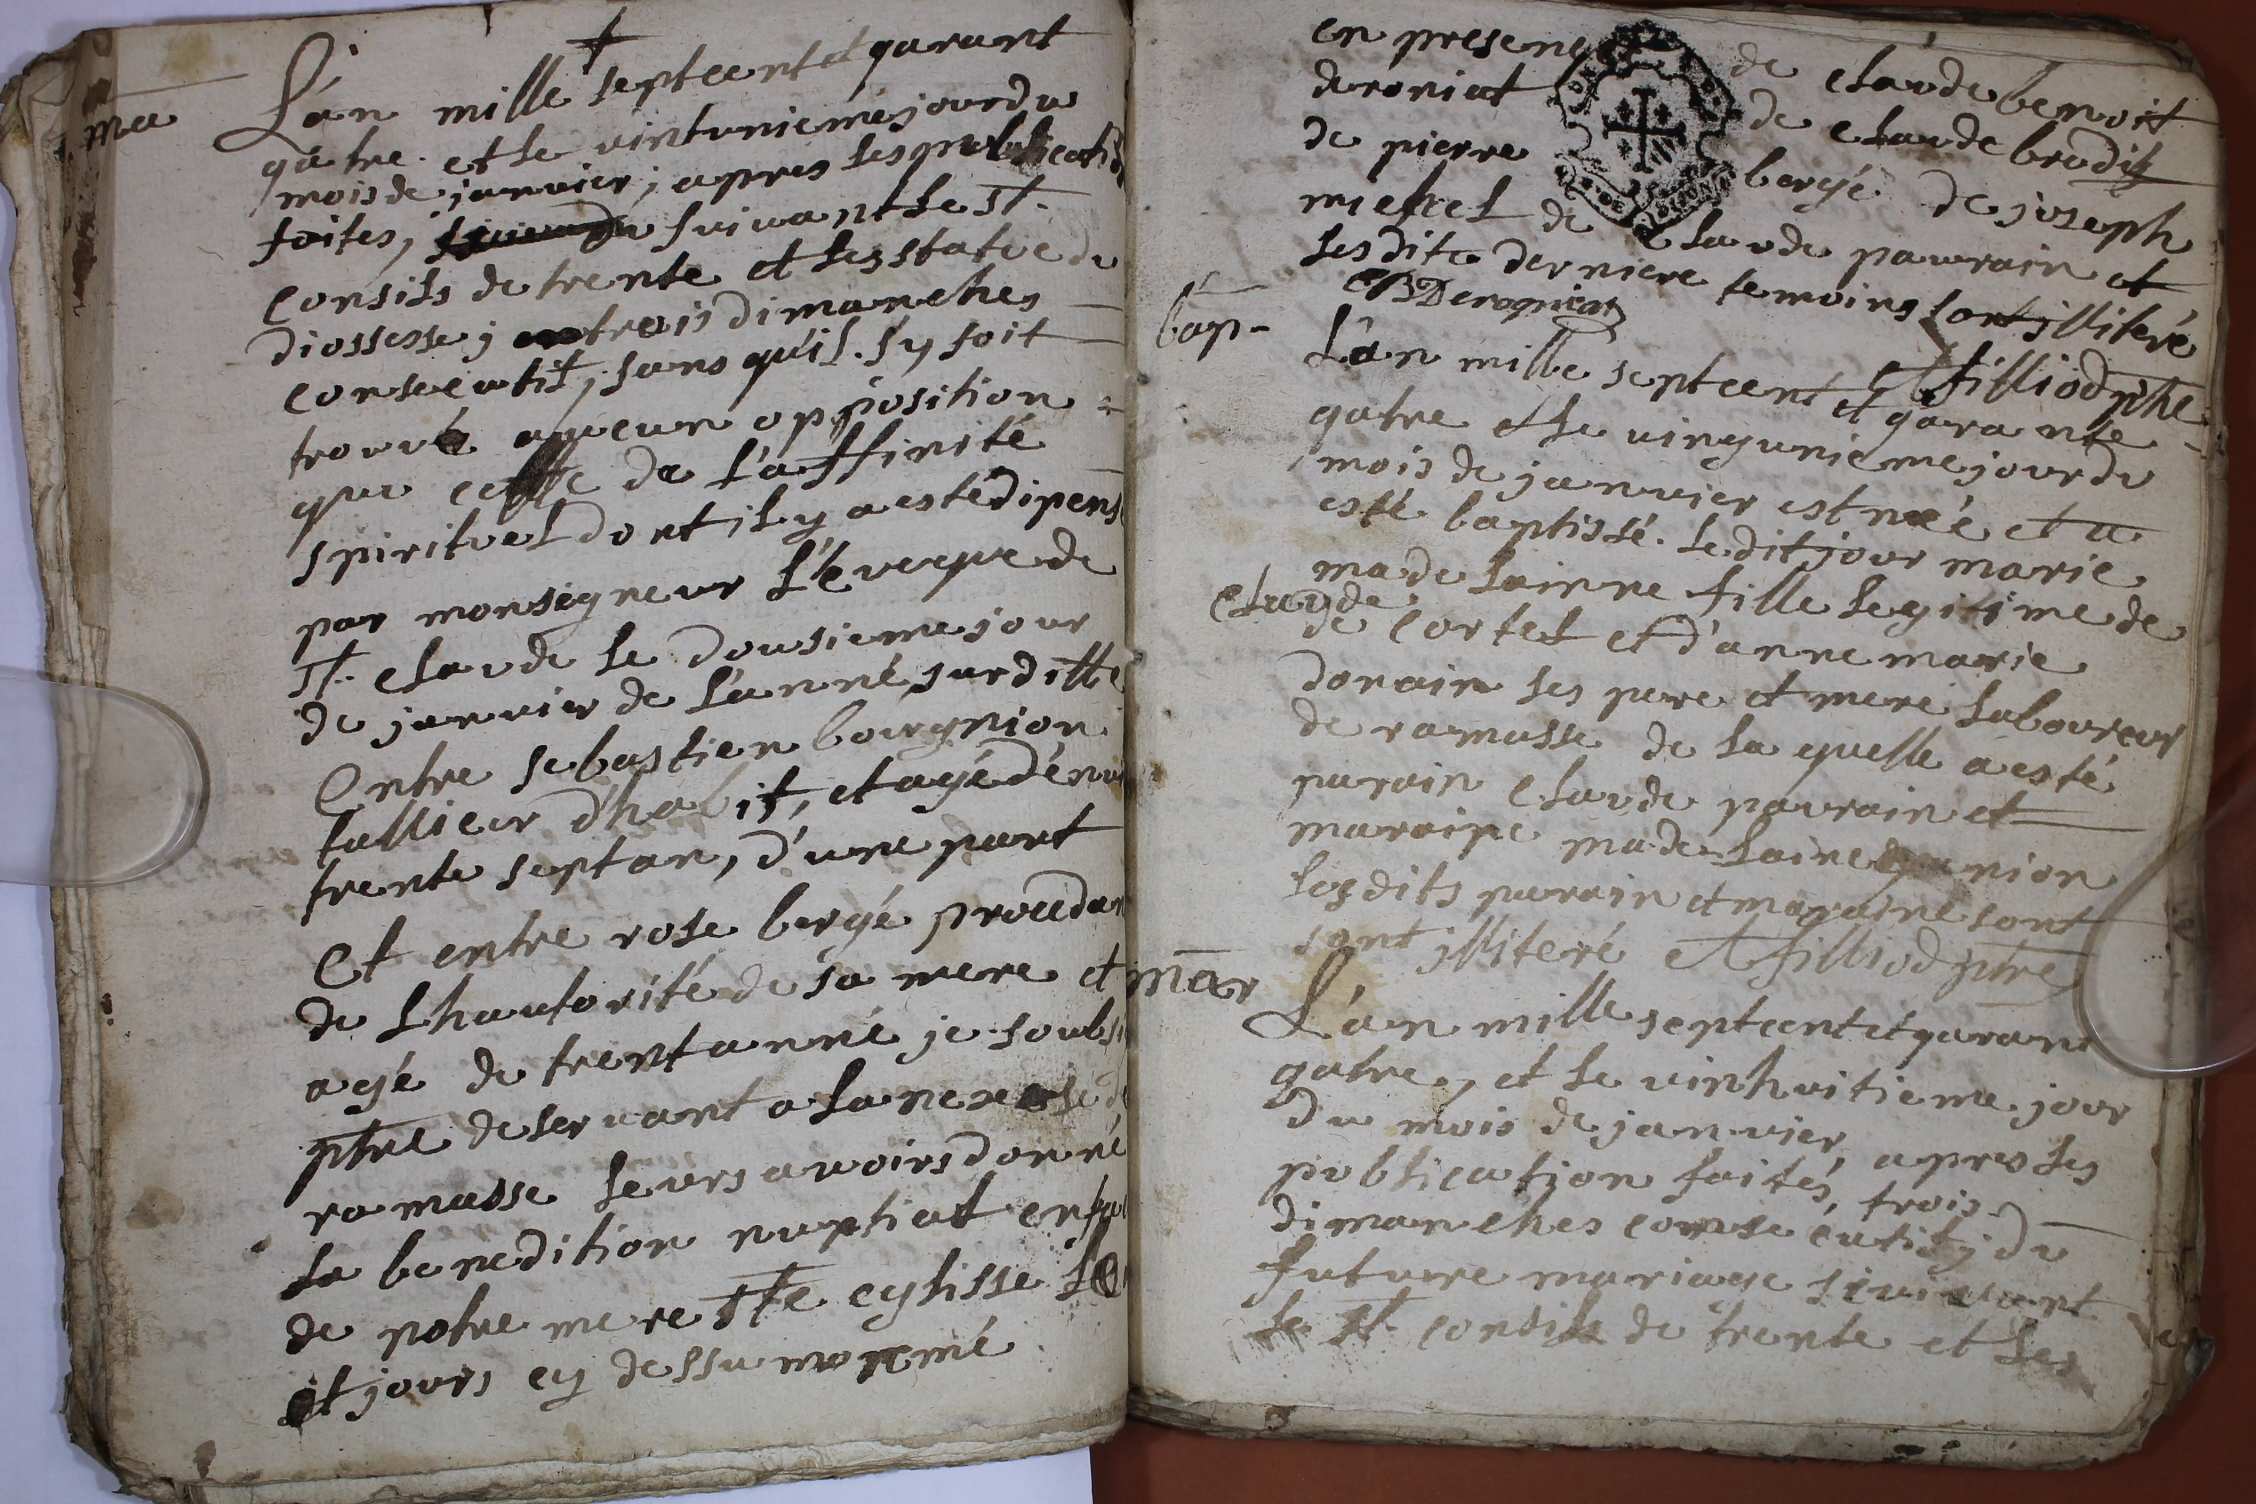 †
ma
L'an mille septcent et qarant
qatre et le vintunieme jour du
mois de janvier, apres les publication
faites, suivant le St.
consils de trente et les statue du
diossesse j trois dimanches
consecutif, sans qu'il sy soit
trouvé aucun opposition
que cette de l'affinité
spirituel dont il y a esté dipensé
par monseigneur l'eveque de
St. claude le dousieme jour
de janvier de l'anné surditte
Entre sebastien bourgnion
tallieur d'habit, et agé dénvi
trente sept an, d'une part
Et entre rose bergé procedan
de l'hautorité de sa mere et
agé de trent anné je soubsi
ptre deservant a lanexe de
ramasse leurs avoirs donné
la benedition nuptial en fa
de notre mere Ste eglisse le
et jours cy dessu nommé
en presence de claude benoit
deroniat de claude brodiz
de pierre bergé de joseph
michel de claude paurain et
lesdite derniere temoins sont illiteré
CBDerogniat
et filliod ptre
bap-
L'an mille septcent et qarante
qatre et le vingunieme jour du
mois de janvier est néé et a
esté baptissé le dit jour marie
madelainne fille legitime de
claude
de cortet et d'anne marie
donain ses pere et mere laboureur
de ramasse de la quelle a esté
parain claude paurain et
maraine madelaine
lesdits parain et maraine sont
sont illiteré et filliod ptre
mar
L'an mille septcent et qarant
qatre, et le vinhuitieme jour
du mois de janvier, apres les
publication faités, trois
dimanches consecutif j du
future mariage suivant
le St. consils de trente et les